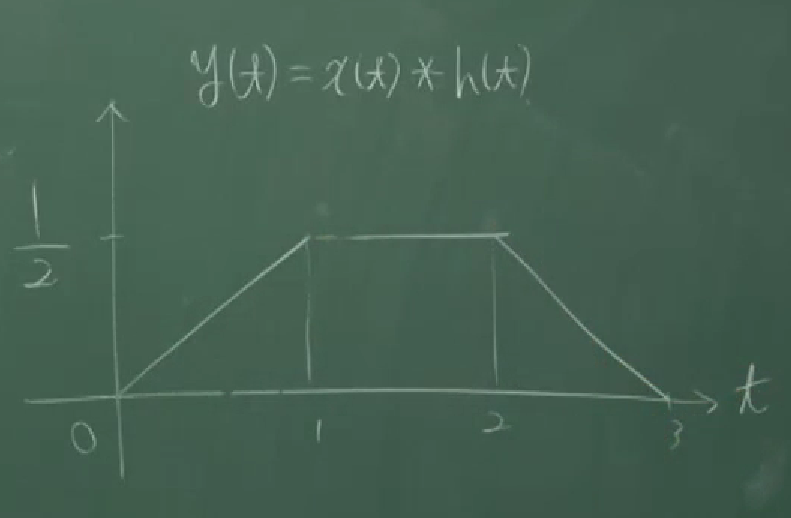 y(t) = x(t) * h(t)
1/2
t
0 1 2 3